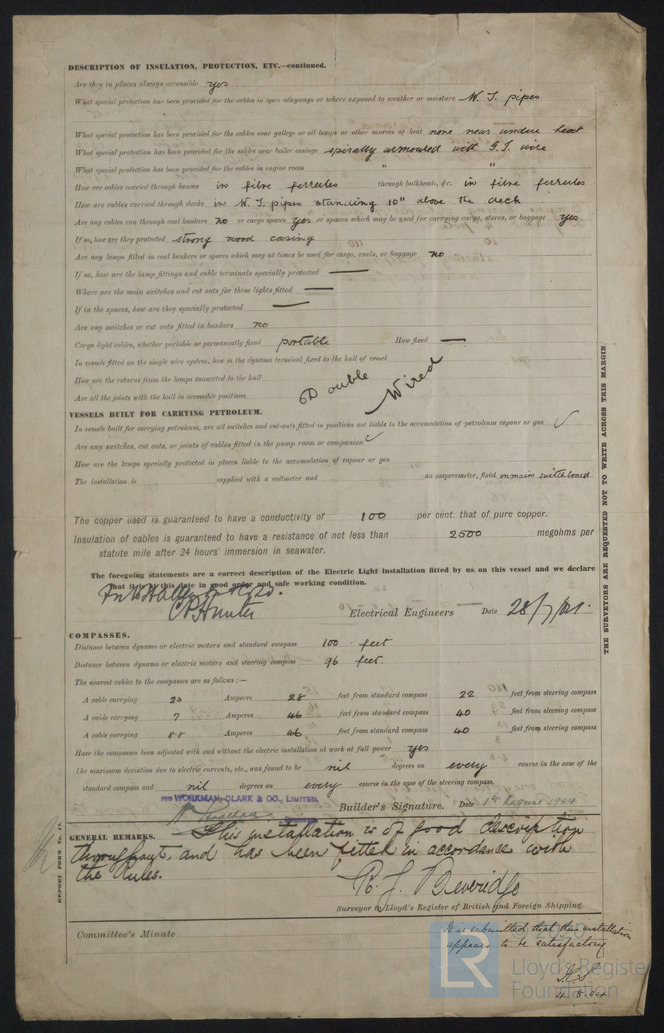 DESCRIPTION OF INSULATION, PROTECTION, ETC.—continued.
Are they in places always accessible yes
What special protection has been provided for the cables in open alleyways or where exposed to weather or moisture W. I. pipes
What special protection has been provided for the cables near galleys or oil lamps or other sources of heat none near undue heat
What special protection has been provided for the cables near boiler casings spirally armoured with G.I. wire
What special protection has been provided for the cables in engine room " "
How are cables carried through beams in fibre ferrules through bulkheads, &c. in fibre ferrules
How are cables carried through decks in W. I. pipes standing 10" above the deck
Are any cables run through coal bunkers no or cargo spaces yes or spaces which may be used for carrying cargo, stores, or baggage yes
If so, how are they protected strong wood casing
Are any lamps fitted in coal bunkers or spaces which may at times be used for cargo, coals, or baggage no
If so, how are the lamp fittings and cable terminals specially protected —
Where are the main switches and cut outs for these lights fitted —
If in the spaces, how are they specially protected —
Are any switches or cut outs fitted in bunkers no
Cargo light cables, whether portable or permanently fixed portable How fixed —
In vessels fitted on the single wire system, how is the dynamo terminal fixed to the hull of vessel
How are the returns from the lamps connected to the hull
Are all the joints with the hull in accessible positions
Double Wired
VESSELS BUILT FOR CARRYING PETROLEUM.
In vessels built for carrying petroleum, are all switches and cut-outs fitted in positions not liable to the accumulation of petroleum vapour or gas ✓
Are any switches, cut outs, or joints of cables fitted in the pump room or companion ✓
How are the lamps specially protected in places liable to the accumulation of vapour or gas
The installation is supplied with a voltmeter and an amperemeter, fixed on main switchboard
The copper used is guaranteed to have a conductivity of 100 per cent. that of pure copper.
Insulation of cables is guaranteed to have a resistance of not less than 2500 megohms per
statute mile after 24 hours' immersion in seawater.
The foregoing statements are a correct description of the Electric Light installation fitted by us on this vessel and we declare
that it is at this date in good order and safe working condition.
Hunter
Electrical Engineers Date 28/7/04.
COMPASSES.
Distance between dynamo or electric motors and standard compass 100 feet
Distance between dynamo or electric motors and steering compass 96 feet
The nearest cables to the compasses are as follows:—
A cable carrying 23 Amperes 28 feet from standard compass 22 feet from steering compass
A cable carrying 7 Amperes 46 feet from standard compass 40 feet from steering compass
A cable carrying 8.8 Amperes 46 feet from standard compass 40 feet from steering compass
Have the compasses been adjusted with and without the electric installation at work at full power yes
The maximum deviation due to electric currents, etc., was found to be nil degrees on every course in the case of the
standard compass and nil degrees on every course in the case of the steering compass.
FOR WORKMAN, CLARK & CO., LIMITED.
Builder's Signature. Date 1st August 1904
GENERAL REMARKS.
This installation is of good description
throughout, and has been fitted in accordance with
the Rules.
R. J. Beveridge
Surveyor to Lloyd's Register of British and Foreign Shipping.
Committee's Minute
It is submitted that this installation
appears to be satisfactory
4.8.04
REPORT FORM No. 13.
THE SURVEYORS ARE REQUESTED NOT TO WRITE ACROSS THIS MARGIN.
LR
Lloyd's Register
Foundation